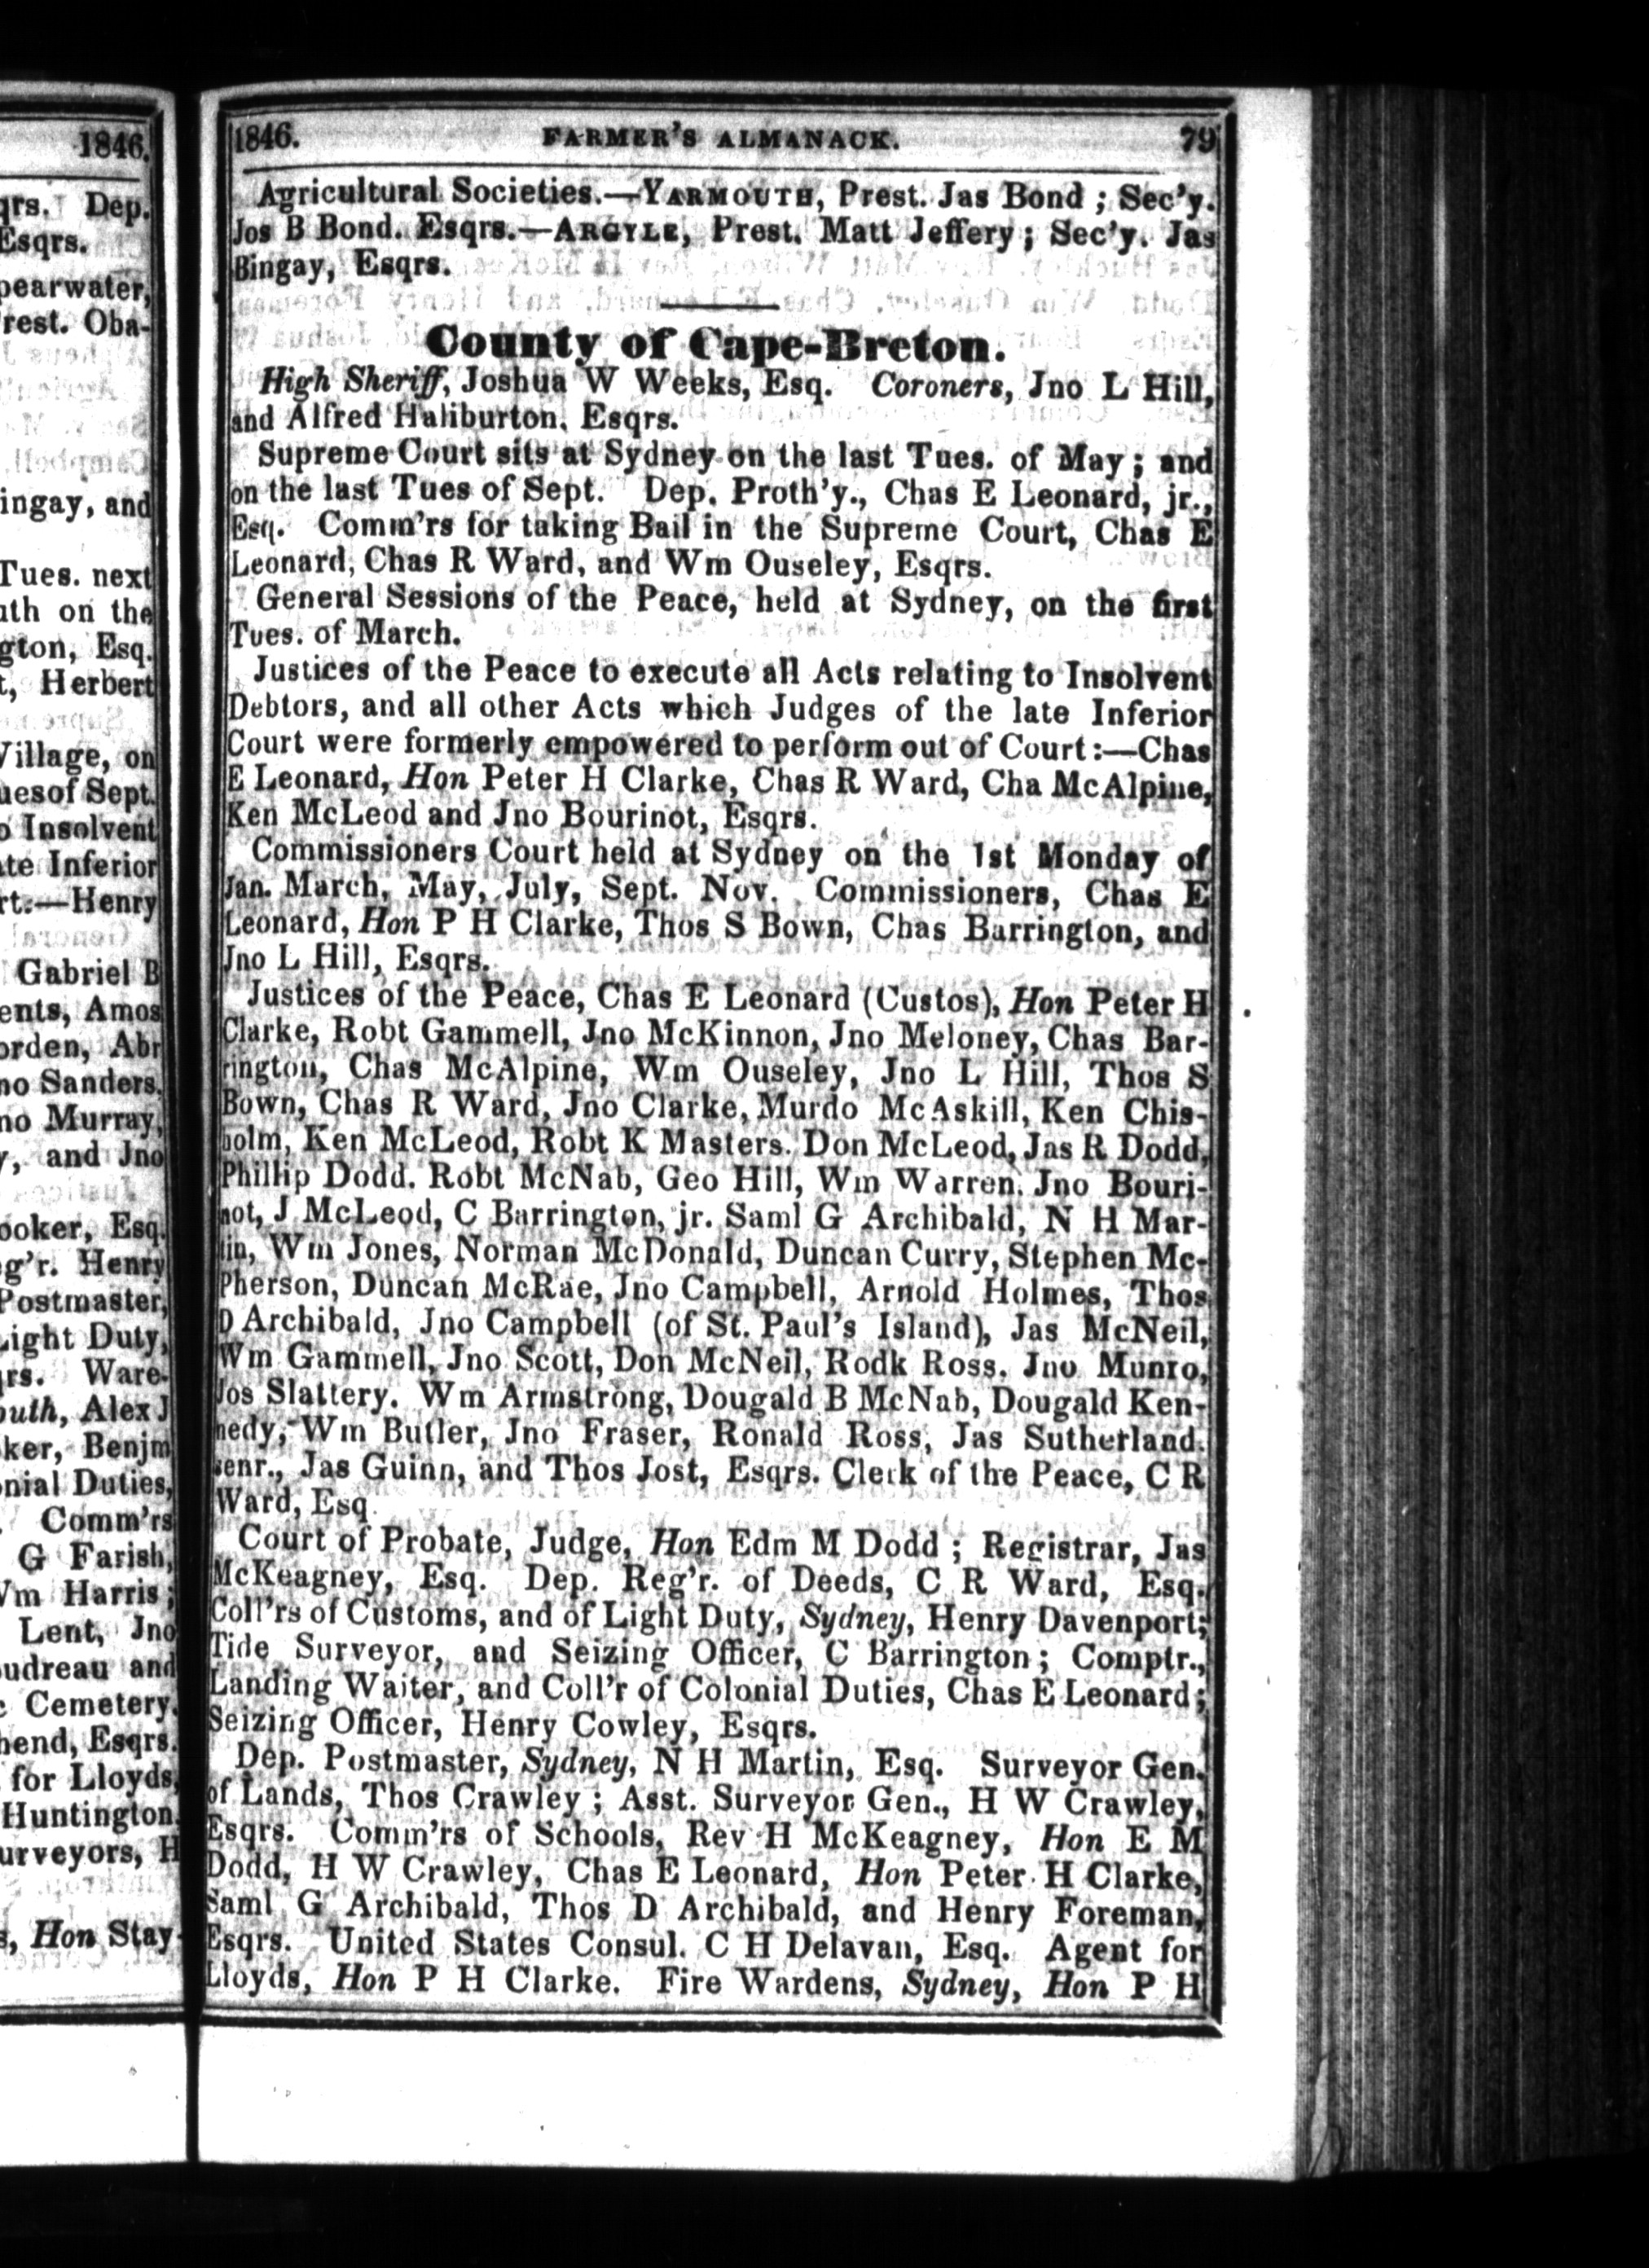 1846.
qrs. Dep.
Esqrs.
pearwater,
rest. Oba-
ingay, and
Tues. next
uth on the
gton, Esq.
t, Herbert
Village, on
uesof Sept.
o Insolvent
te Inferior
rt.—Henry
Gabriel B
ents, Amos
orden, Abr
no Sanders,
no Murray,
y, and Jno
ooker, Esq.
g'r. Henry
Postmaster,
Light Duty,
qrs. Ware-
outh, Alex J
ker, Benjm
nial Duties,
Comm'rs
G Farish,
Wm Harris;
Lent, Jno
oudreau and
c Cemetery.
hend, Esqrs.
for Lloyds,
Huntington.
urveyors, H
s, Hon Stay-
1846. FARMER'S ALMANACK. 79
Agricultural Societies.—YARMOUTH, Prest. Jas Bond ; Sec'y.
Jos B Bond. Esqrs.—ARGYLE, Prest. Matt Jeffery ; Sec'y. Jas
Bingay, Esqrs.
County of Cape-Breton.
High Sheriff, Joshua W Weeks, Esq. Coroners, Jno L Hill,
and Alfred Haliburton. Esqrs.
Supreme Court sits at Sydney on the last Tues. of May ; and
on the last Tues of Sept. Dep. Proth'y., Chas E Leonard, jr.,
Esq. Comm'rs for taking Bail in the Supreme Court, Chas E
Leonard, Chas R Ward, and Wm Ouseley, Esqrs.
General Sessions of the Peace, held at Sydney, on the first
Tues. of March.
Justices of the Peace to execute all Acts relating to Insolvent
Debtors, and all other Acts which Judges of the late Inferior
Court were formerly empowered to perform out of Court :—Chas
E Leonard, Hon Peter H Clarke, Chas R Ward, Cha McAlpine,
Ken McLeod and Jno Bourinot, Esqrs.
Commissioners Court held at Sydney on the 1st Monday of
Jan. March, May, July, Sept. Nov. Commissioners, Chas E
Leonard, Hon P H Clarke, Thos S Bown, Chas Barrington, and
Jno L Hill, Esqrs.
Justices of the Peace, Chas E Leonard (Custos), Hon Peter H
Clarke, Robt Gammell, Jno McKinnon, Jno Meloney, Chas Bar-
rington, Chas McAlpine, Wm Ouseley, Jno L Hill, Thos S
Bown, Chas R Ward, Jno Clarke, Murdo McAskill, Ken Chis-
holm, Ken McLeod, Robt K Masters. Don McLeod, Jas R Dodd,
Phillip Dodd. Robt McNab, Geo Hill, Wm Warren. Jno Bouri-
not, J McLeod, C Barrington, jr. Saml G Archibald, N H Mar-
tin, Wm Jones, Norman McDonald, Duncan Curry, Stephen Mc-
Pherson, Duncan McRae, Jno Campbell, Arnold Holmes, Thos
D Archibald, Jno Campbell (of St. Paul's Island), Jas McNeil,
Wm Gammell, Jno Scott, Don McNeil, Rodk Ross. Jno Munro,
Jos Slattery. Wm Armstrong, Dougald B McNab, Dougald Ken-
nedy, Wm Butler, Jno Fraser, Ronald Ross, Jas Sutherland.
senr., Jas Guinn, and Thos Jost, Esqrs. Clerk of the Peace, C R
Ward, Esq
Court of Probate, Judge, Hon Edm M Dodd ; Registrar, Jas
McKeagney, Esq. Dep. Reg'r. of Deeds, C R Ward, Esq.
Coll'rs of Customs, and of Light Duty, Sydney, Henry Davenport;
Tide Surveyor, and Seizing Officer, C Barrington ; Comptr.,
Landing Waiter, and Coll'r of Colonial Duties, Chas E Leonard ;
Seizing Officer, Henry Cowley, Esqrs.
Dep. Postmaster, Sydney, N H Martin, Esq. Surveyor Gen.
of Lands, Thos Crawley ; Asst. Surveyor Gen., H W Crawley,
Esqrs. Comm'rs of Schools, Rev H McKeagney, Hon E M
Dodd, H W Crawley, Chas E Leonard, Hon Peter H Clarke,
Saml G Archibald, Thos D Archibald, and Henry Foreman,
Esqrs. United States Consul. C H Delavan, Esq. Agent for
Lloyds, Hon P H Clarke. Fire Wardens, Sydney, Hon P H